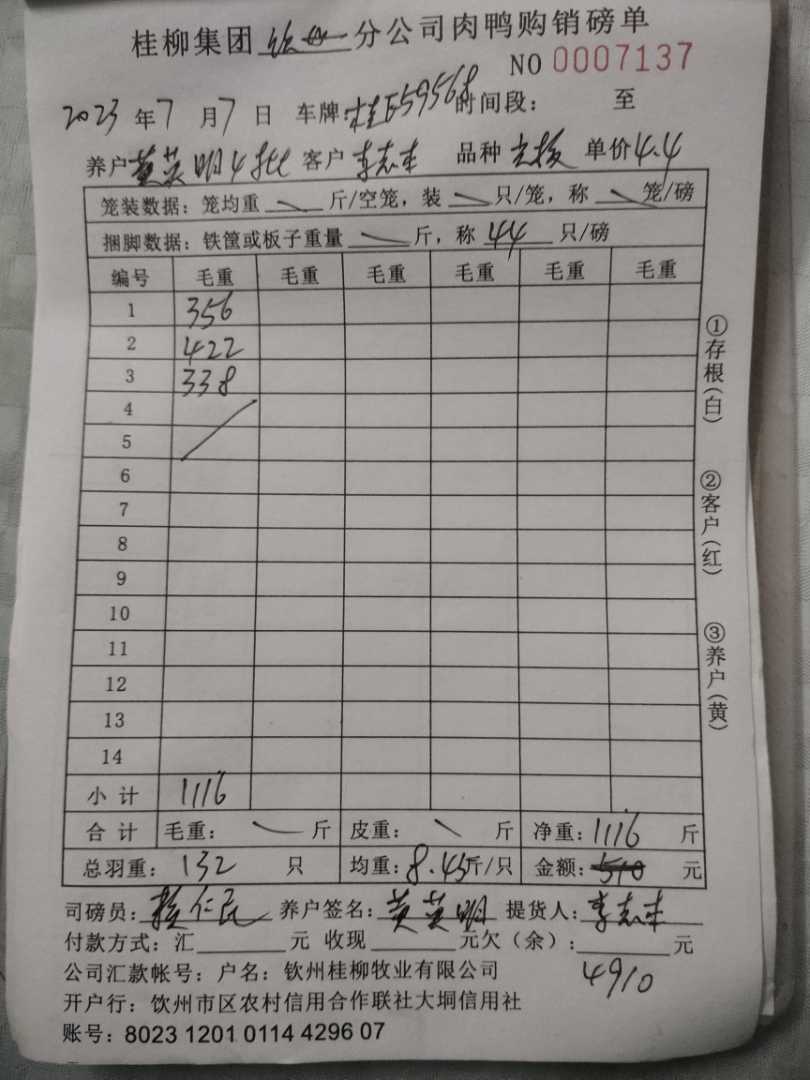 桂柳集团 钦州 分公司肉鸭购销磅单
NO 0007137
2023 年 7 月 7 日 车牌: 桂E59568 时间段: 至
养户 黄英明4批 客户 李志丰 品种 单价 4.4
笼装数据: 笼均重 斤/空笼, 装 只/笼, 称 笼/磅
捆脚数据: 铁筐或板子重量 斤, 称 44 只/磅
编号 毛重 毛重 毛重 毛重 毛重 毛重
1 356
2 422
3 338
4
5
6
7
8
9
10
11
12
13
14
小 计 1116
合 计 毛重: 斤 皮重: 斤 净重: 1116 斤
总羽重: 132 只 均重: 8.45 斤/只 金额: 元
司磅员: 仁民 养户签名: 黄英明 提货人: 李志丰
付款方式: 汇 元 收现 元欠(余): 元
4910
公司汇款帐号: 户名: 钦州桂柳牧业有限公司
开户行: 饮州市区农村信用合作联社大垌信用社
账号: 8023 1201 0114 4296 07
①存根(白)
②客户(红)
③养户(黄)